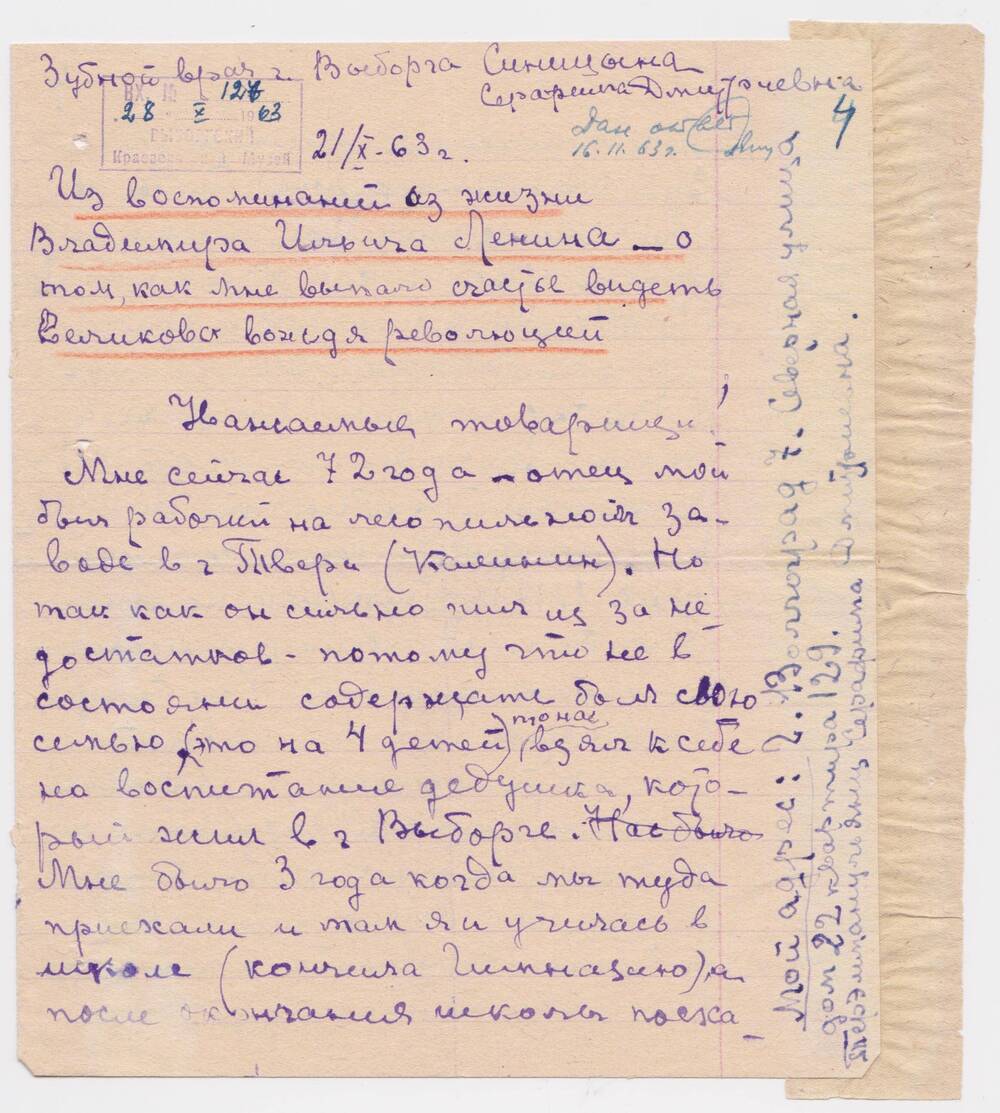 Зубной врач г. Выборга Синицына
Серафима Дмитриевна
ВХ № 127
28 X 1963
Выборгский
Краеведческий Музей
21/X-63 г.
Дан ответ
16.11.63 г.
4
Из воспоминаний из жизни
Владимира Ильича Ленина – о
том, как мне выпало счастье видеть
Великова вождя революций
Уважаемые товарищи!
Мне сейчас 72 года – отец мой
был рабочий на лесопильном за-
воде в г Твери (Калинин). Но
так как он сильно пил из за не
достатков – потому что не в
состоянии содержать был свою
семью (это на 4 детей) то нас взял к себе
на воспитание дедушка, кото-
рый жил в г Выборге. Нас было
Мне было 3 года когда мы туда
приехали и там я и училась в
школе (кончила Гимназию), а
после окончания школы поеха-
Мой адрес: г. Волгоград 7. Северная улица
дом 22 квартира 129.
Серафима Дмитриевна.